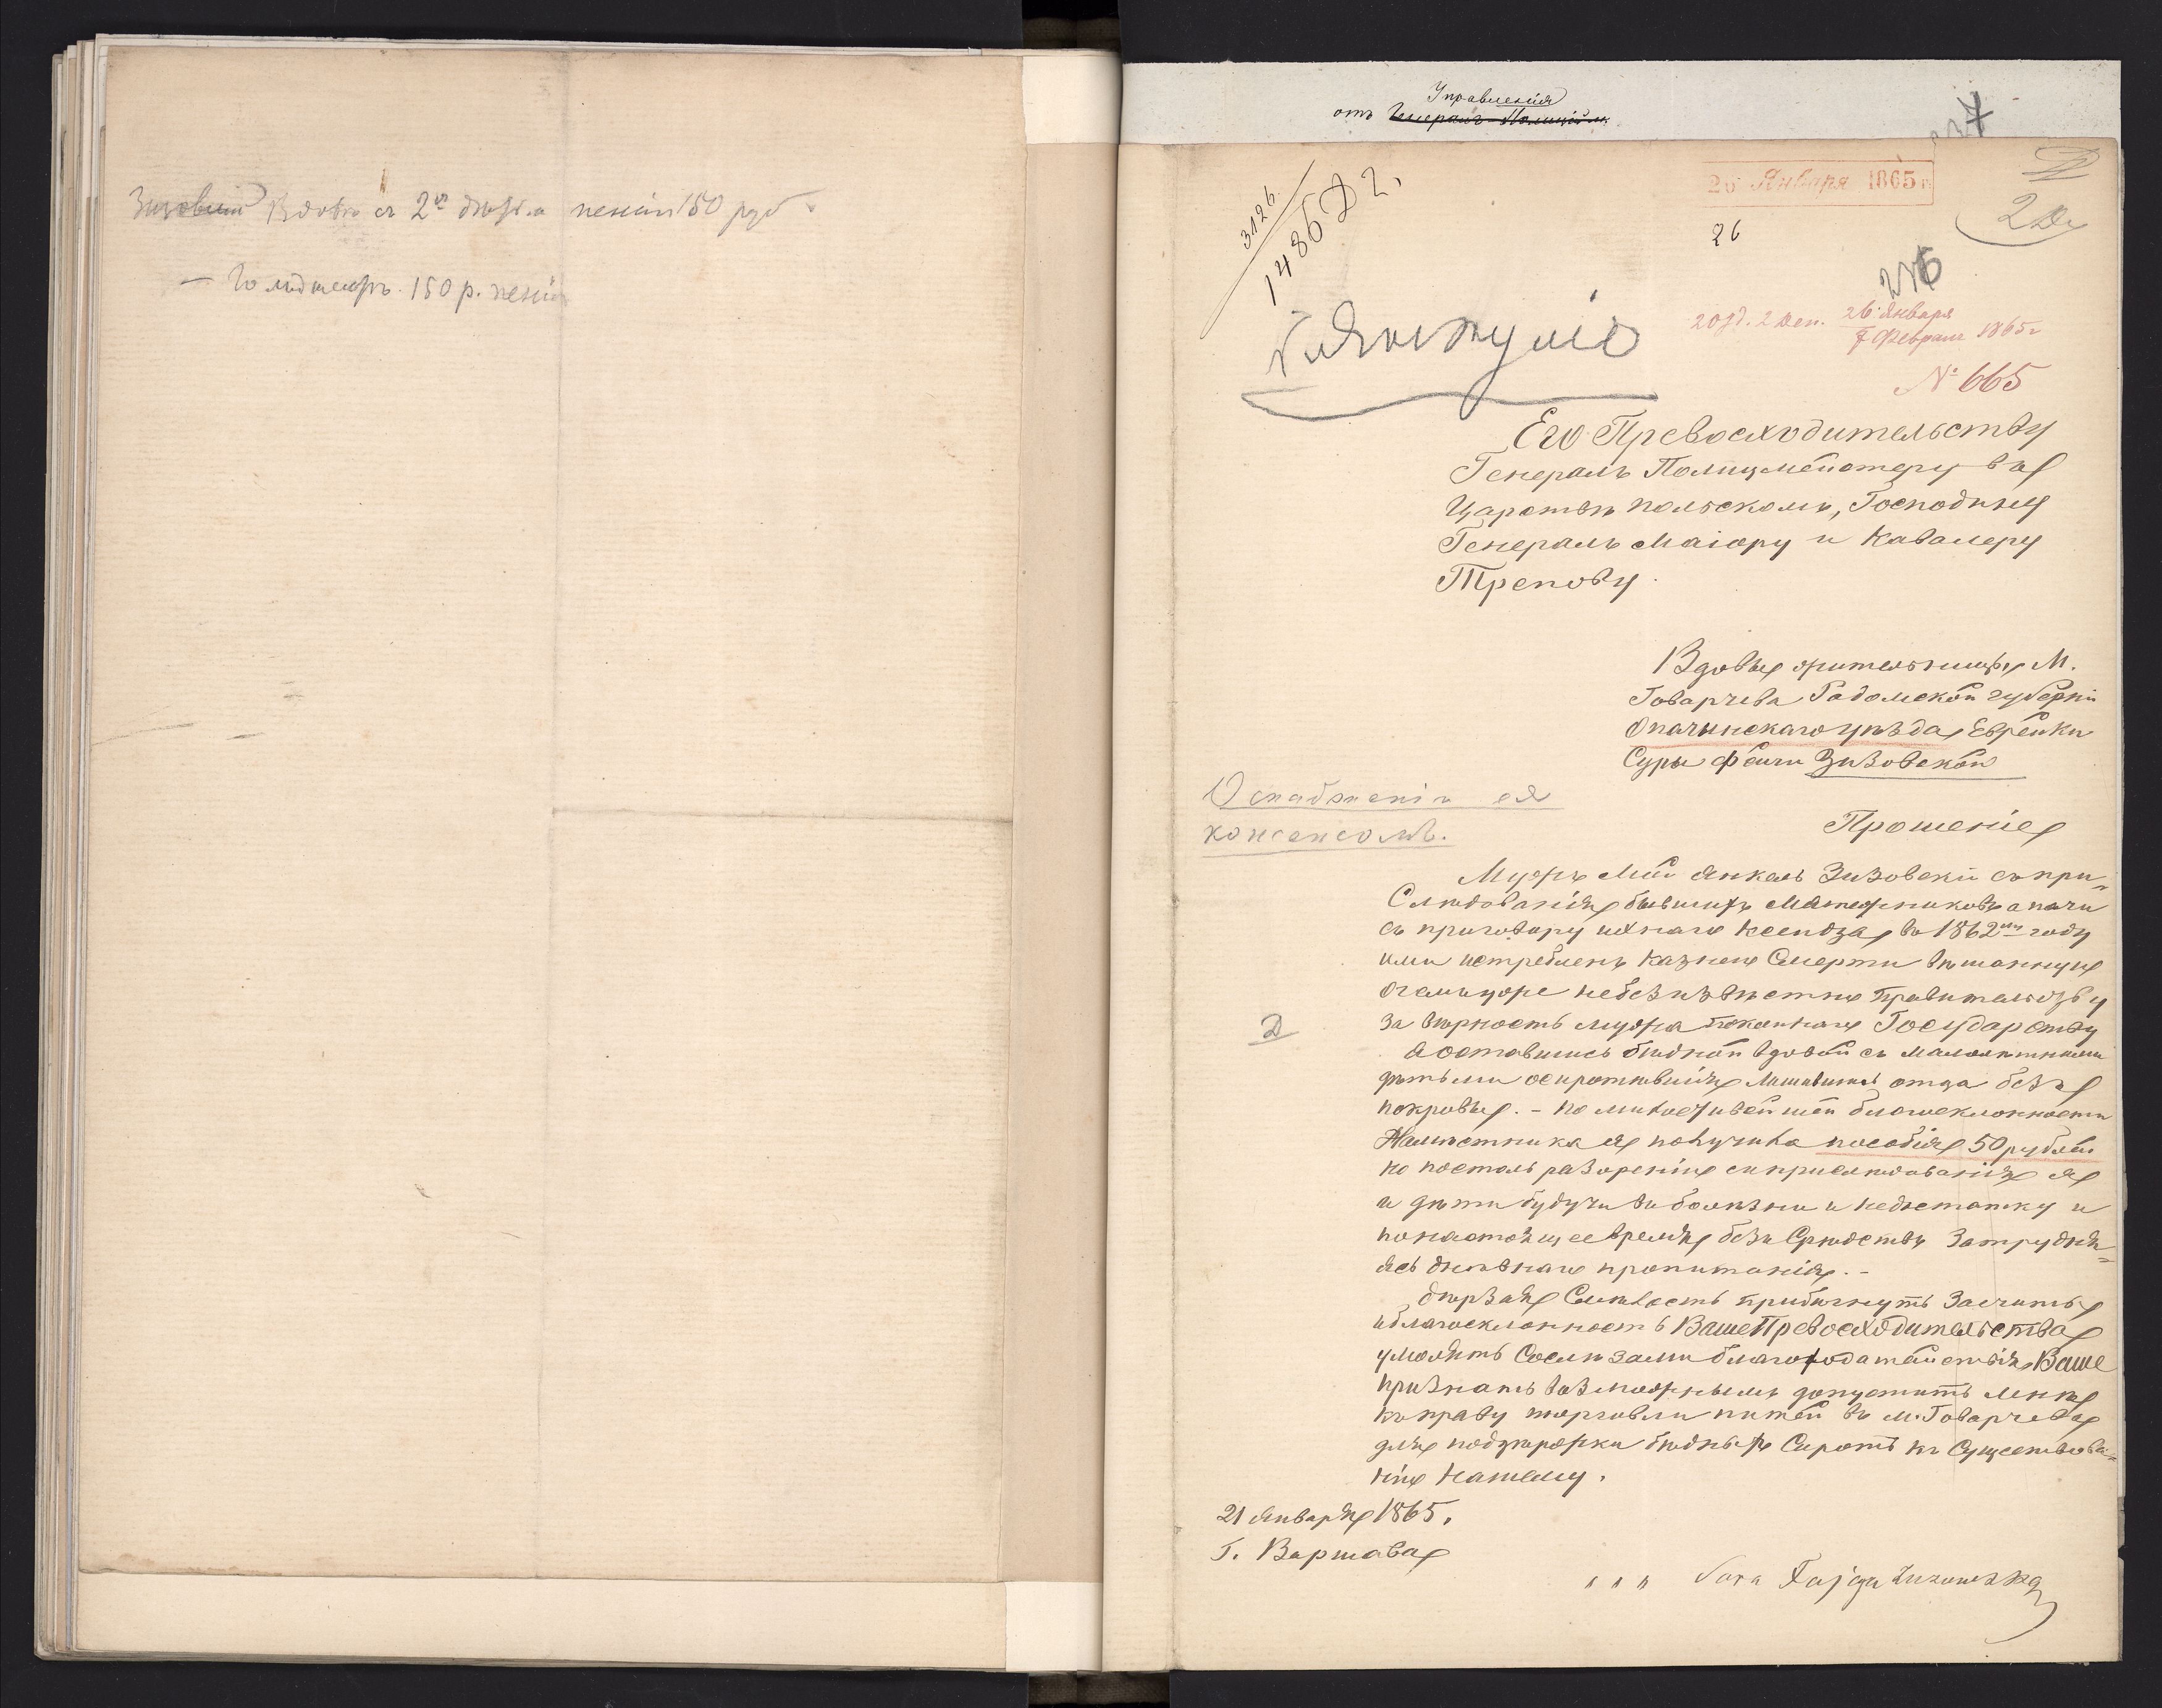 Зизовский Вдова съ 2я дѣтьми пенсіи 150 руб.
— 150 р. пенсіи
Управленія
отъ Генералъ-Полицейм.
7
3126
1486 Д 2,
26 Января 1865 г.
26
2 Де
20 д. 2 Ден. 26 Января
7 Февраля 1865 г
№ 665
Его Превосходительству
Генералъ Полицмейстеру въ
Царствѣ Польскомъ, Господину
Генералъ Маіору и Кавалеру
Трепову.
Вдовы жительницы М.
Говарчева Радомской губерніи
Опачинскаго уѣзда Еврейки
Суры Файги Зизовской
О снабженіи ея
консенсомъ.
Прошеніе
Мужъ Мой Янкель Зизовскій съ при„
Слюдованія бывшихъ Мятежниковъ а пачи
съ приговору ихнаго Ксендза въ 1862мъ году
ими истребленъ Казнею Смерти вѣшанную
О чемъ уже небезизвѣстно Правительству
За вѣрность мужа Государству
Я оставшись бюдной вдовой съ Малолѣтними
дѣтьми осиротѣвшія Лишившись отца безъ
покровы. – По милостивейшей благосклонности
Намѣстника я получила пособія 50 рублей
но постоль разореніи съ прислюдованія я
и дѣти будучи въ болѣзни и недостатку и
по настоящее время безъ Срюдствъ Затрудня=
ясь дневнаго пропитанія. –
Дюрзая Смѣлость прибигнуть Защиты
и благосклонность Ваше Превосходительства
умолять Сослизами благоходатайствія Ваше
признать Возможнымъ допустить Мѣнѣ
къ праву торговли питей въ м. Говарчева
для поддержки бюдныхъ Сиротъ къ Существова=
нію нашему.
Д
21 Января 1865.
Г. Варшава
„ „ „ Sora Fajga Zuzowska